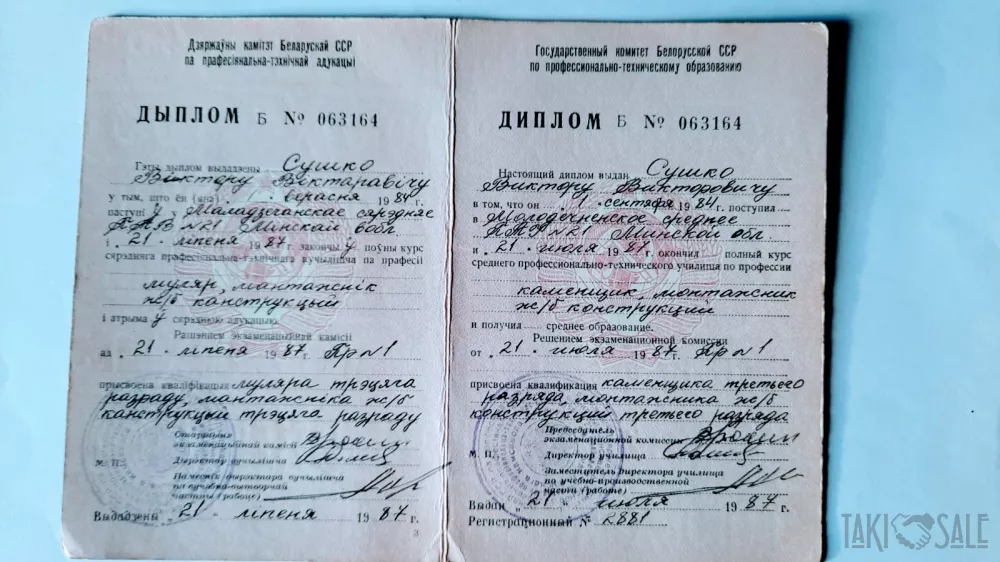 Дзяржаўны камітэт Беларускай ССР
па прафесіянальна-тэхнічнай адукацыі
ДЫПЛОМ Б № 063164
Гэты дыплом выдадзены Сушко
Віктору Віктаравічу
у тым, што ён (яна) верасня 1984 г.
паступіў у Маладзечанскае сярэдняе
ПТВ №21 Мінскай вобл
і „21“ ліпеня 1987 г. закончыў поўны курс
сярэдняга прафесіянальна-тэхнічнага вучылішча па прафесіі
муляр, мантажнік
ж/б канструкцый
і атрымаў сярэднюю адукацыю.
Рашэннем экзаменацыйнай камісіі
ад „21“ ліпеня 1987 г. Пр №1
прысвоена кваліфікацыя муляра трэцяга
разраду, мантажніка ж/б
канструкцый трэцяга разраду
Старшыня
экзаменацыйнай камісіі
М. П. Дырэктар вучылішча
Намеснік дырэктара вучылішча
па вучэбна-вытворчай
частцы (рабоце)
Выдадзены „21“ ліпеня 1987 г.
3
Государственный комитет Белорусской ССР
по профессионально-техническому образованию
ДИПЛОМ Б № 063164
Настоящий диплом выдан Сушко
Виктору Викторовичу
в том, что он „1“ сентября 1984 г. поступил
в Молодечненское среднее
ПТУ №21 Минской обл
и „21“ июля 1987 г. окончил полный курс
среднего профессионально-технического училища по профессии
каменщик, монтажник
ж/б конструкций
и получил среднее образование.
Решением экзаменационной комиссии
от „21“ июля 1987 г. Пр №1
присвоена квалификация каменщика третьего
разряда, монтажника ж/б
конструкций третьего разряда
Председатель
экзаменационной комиссии
М. П. Директор училища
Заместитель директора училища
по учебно-производственной
части (работе)
Выдан „21“ июля 1987 г.
Регистрационный № 2881
TAKI SALE